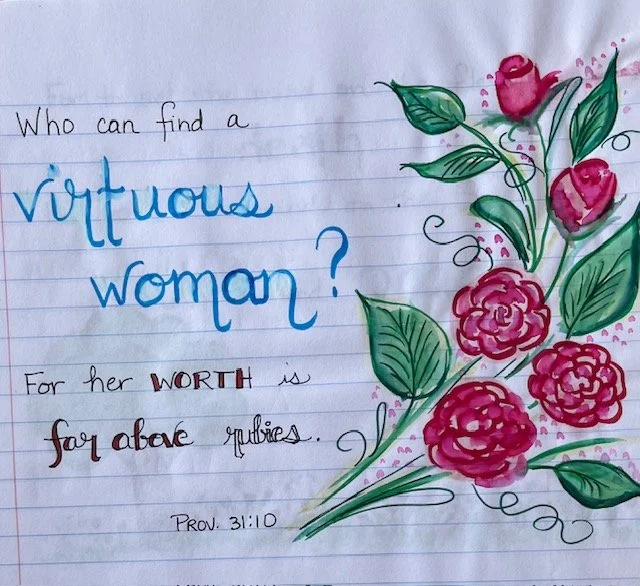 Who can find a
virtuous
woman?
For her WORTH is
far above rubies.
PROV. 31:10